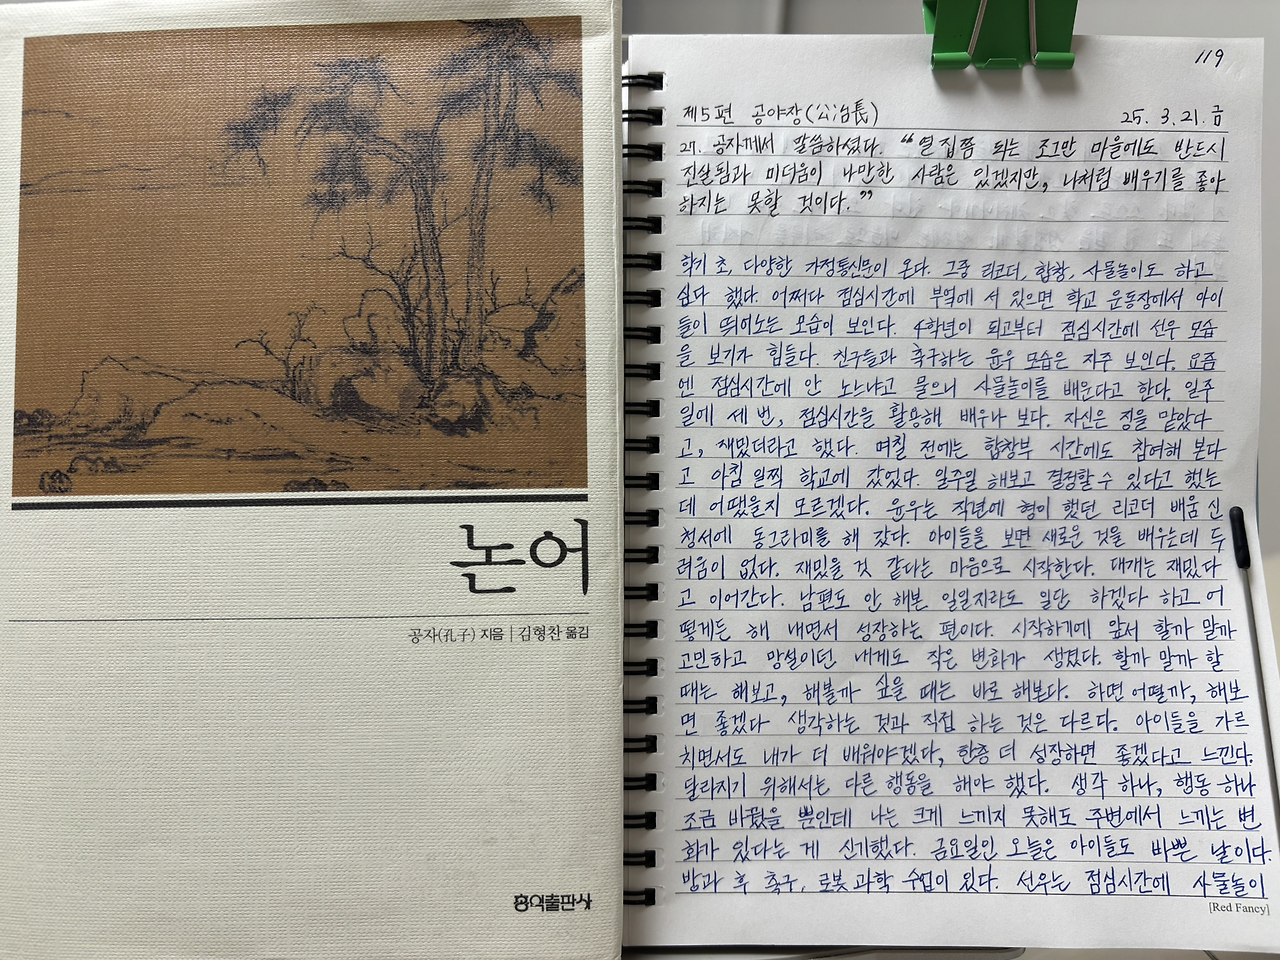 논어
공자(孔子) 지음 | 김형찬 옮김
홍익출판사
119
제5편 공야장(公冶長) 25. 3. 21. 금
27. 공자께서 말씀하셨다. “열 집쯤 되는 조그만 마을에도 반드시
진실됨과 미더움이 나만한 사람은 있겠지만, 나처럼 배우기를 좋아
하지는 못할 것이다.”
학기 초, 다양한 가정통신문이 온다. 그중 리코더, 합창, 사물놀이도 하고
싶다 했다. 어쩌다 점심시간에 부엌에 서 있으면 학교 운동장에서 아이
들이 뛰어노는 모습이 보인다. 4학년이 되고부터 점심시간에 선우 모습
을 보기가 힘들다. 친구들과 축구하는 윤우 모습은 자주 보인다. 요즘
엔 점심시간에 안 노느냐고 물으니 사물놀이를 배운다고 한다. 일주
일에 세 번, 점심시간을 활용해 배우나 보다. 자신은 징을 맡았다
고, 재밌더라고 했다. 며칠 전에는 합창부 시간에도 참여해 본다
고 아침 일찍 학교에 갔었다. 일주일 해보고 결정할 수 있다고 했는
데 어땠을지 모르겠다. 윤우는 작년에 형이 했던 리코더 배움 신
청서에 동그라미를 해 갔다. 아이들을 보면 새로운 것을 배우는데 두
려움이 없다. 재밌을 것 같다는 마음으로 시작한다. 대개는 재밌다
고 이어간다. 남편도 안 해본 일일지라도 일단 하겠다 하고 어
떻게든 해 내면서 성장하는 편이다. 시작하기에 앞서 할까 말까
고민하고 망설이던 내게도 작은 변화가 생겼다. 할까 말까 할
때는 해보고, 해볼까 싶을 때는 바로 해본다. 하면 어떨까, 해보
면 좋겠다 생각하는 것과 직접 하는 것은 다르다. 아이들을 가르
치면서도 내가 더 배워야겠다, 한층 더 성장하면 좋겠다고 느낀다.
달라지기 위해서는 다른 행동을 해야 했다. 생각 하나, 행동 하나
조금 바꿨을 뿐인데 나는 크게 느끼지 못해도 주변에서 느끼는 변
화가 있다는 게 신기했다. 금요일인 오늘은 아이들도 바쁜 날이다.
방과 후 축구, 로봇 과학 수업이 있다. 선우는 점심시간에 사물놀이
[Red Fancy]